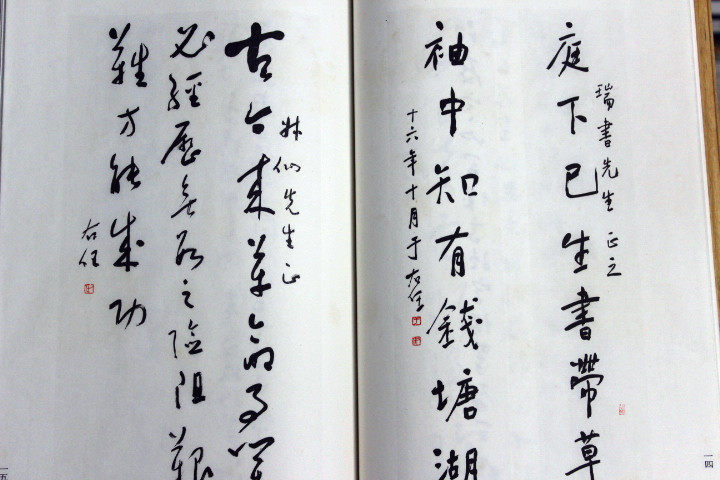 庭下已生書帶草
瑞書先生正之
袖中知有錢塘湖
十六年十月于右任
一四
古今來革命事業
仙先生正
必經歷無數之險阻艱
難方能成功
右任
一五